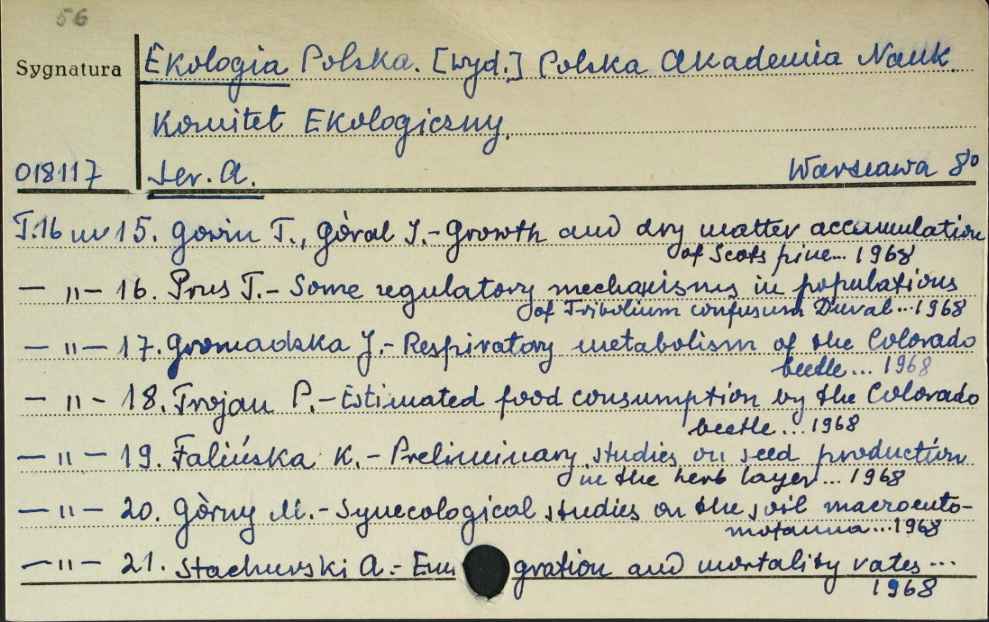 56
Sygnatura
Ekologia Polska. [wyd.] Polska Akademia Nauk.
Komitet Ekologiczny.
018117
Ser. A.
Warszawa 8°
T.16 nr 15. Gorin T., Góral J.- Growth and dry matter accumulation
of Scots pine... 1968
— " — 16. Prus T.- Some regulatory mechanisms in populations
of Tribolium confusum Duval... 1968
— " — 17. Gromadzka J.- Respiratory metabolism of the Colorado
beetle... 1968
— " — 18. Trojan P.- Estimated food consumption by the Colorado
beetle... 1968
— " — 19. Falińska K.- Preliminary studies on seed production
in the herb layer... 1968
— " — 20. Górny M.- Synecological studies on the soil macroento-
mofauna... 1968
— " — 21. Stachurski A.- Emigration and mortality rates...
1968